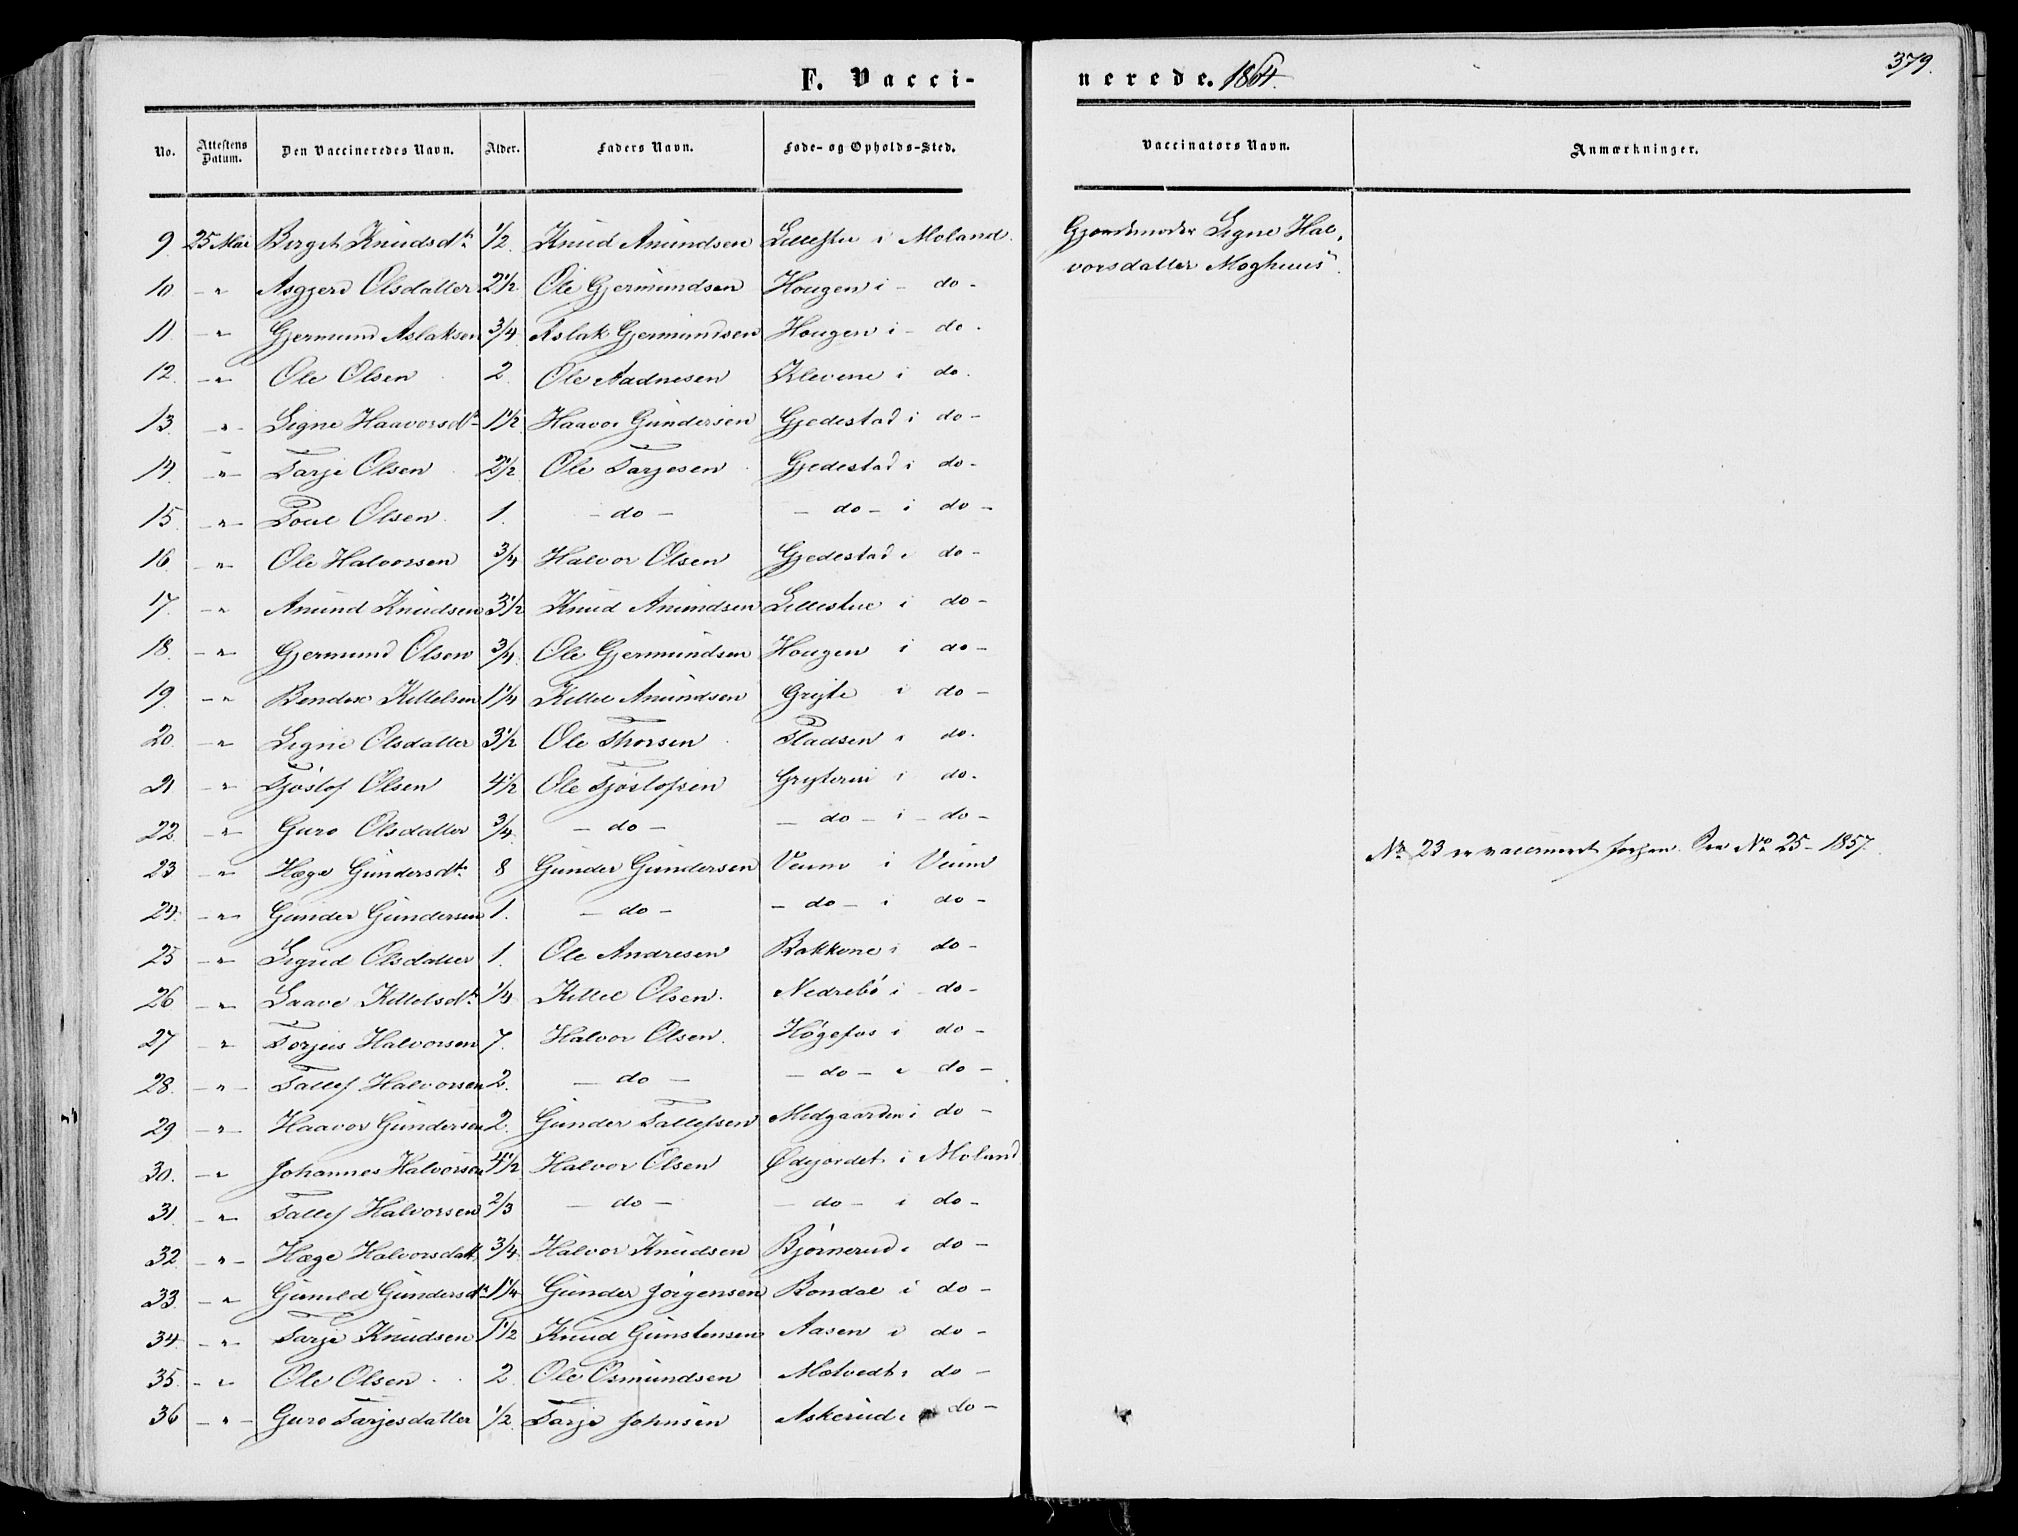 F. Vacci-
nerede. 1864.
379.
No. Attestens Datum. Den Vaccineredes Navn. Alder. Faders Navn. Føde- og Opholds-Sted. Vaccinators Navn. Anmærkninger.
9 25 Mai Berget Knudsdtr 1/2 Knud Anundsen Lillestue i Moland. Gjordemoder Signe Hal-
vorsdatter Moghuus.
10 - " Asgjerd Olsdatter 2 1/2 Ole Gjermundsen Hougen i - do -
11. - " Gjermund Aslaksen 3/4 Aslak Gjermundsen Hougen i - do -
12. - " - Ole Olsen 2. Ole Aadnesen Klevene i do.
13. - " - Signe Haavorsdtr 1 1/2 Haavor Gundersen Gjedestad i do -
14. - " - Tarje Olsen 2 1/2 Ole Tarjesen Gjedestad i do -
15. - " - Poul Olsen 1. - do - - do - i do -
16. - " - Ole Halvorsen 3/4 Halvor Olsen Gjedestad i do -
17. - " Anund Knudsen 3 1/2 Knud Anundsen Lillestue i do -
18. - " - Gjermund Olsen 3/4 Ole Gjermundsen Hougen i do -
19. - " Bendix Kittelsen 1 1/4 Kittel Anundsen Gryte i do -
20. - " Signe Olsdatter 3 1/2 Ole Thorsen Pladsen i do.
21 - " Tjøstof Olsen 4 1/2 Ole Tjøstofsen Gryterui i do -
22 - " - Guro Olsdatter 3/4 - do - - do - i - do -
23 - " Hæge Gundersdtr 8 Gunder Gundersen Veum i Veum No 23 er vaccineret forhen. See No 25 - 1857.
24. - " - Gunder Gundersen 1. - do - - do - i do -
25 - " - Sigrid Olsdatter 1. Ole Andresen Bakkene i do -
26 - " Saave Kittelsdtr 1/4 Kittel Olsen. Nedrebø i - do -
27 - " Torjus Halvorsen 7. Halvor Olsen. Høgefos i do -
28. - " - Tallef Halvorsen 2. - do - - do - i do -
29 - " - Haavor Gundersen 2. Gunder Tallefsen Midgaarden i do -
30. - " Johannes Halvorsen 4 1/2 Halvor Olsen Ødejordet i Moland
31. - " Tallef Halvorsen 2/3 - do - - do - i do -
32. - " - Hæge Halvorsdatt. 3/4. Halvor Knudsen Bjørnerud i do -
33. - " Gunild Gundersdtr 1 1/4 Gunder Jörgensen Bondal i do -
34. - " - Tarje Knudsen 1 1/2 Knud Gunstensen Aasen i do -
35. - " Ole Olsen. 2. Ole Osmundsen Mætvedt i do -
36 - " - Guro Tarjesdatter 1/2 Tarje Johnsen Askerud i do -